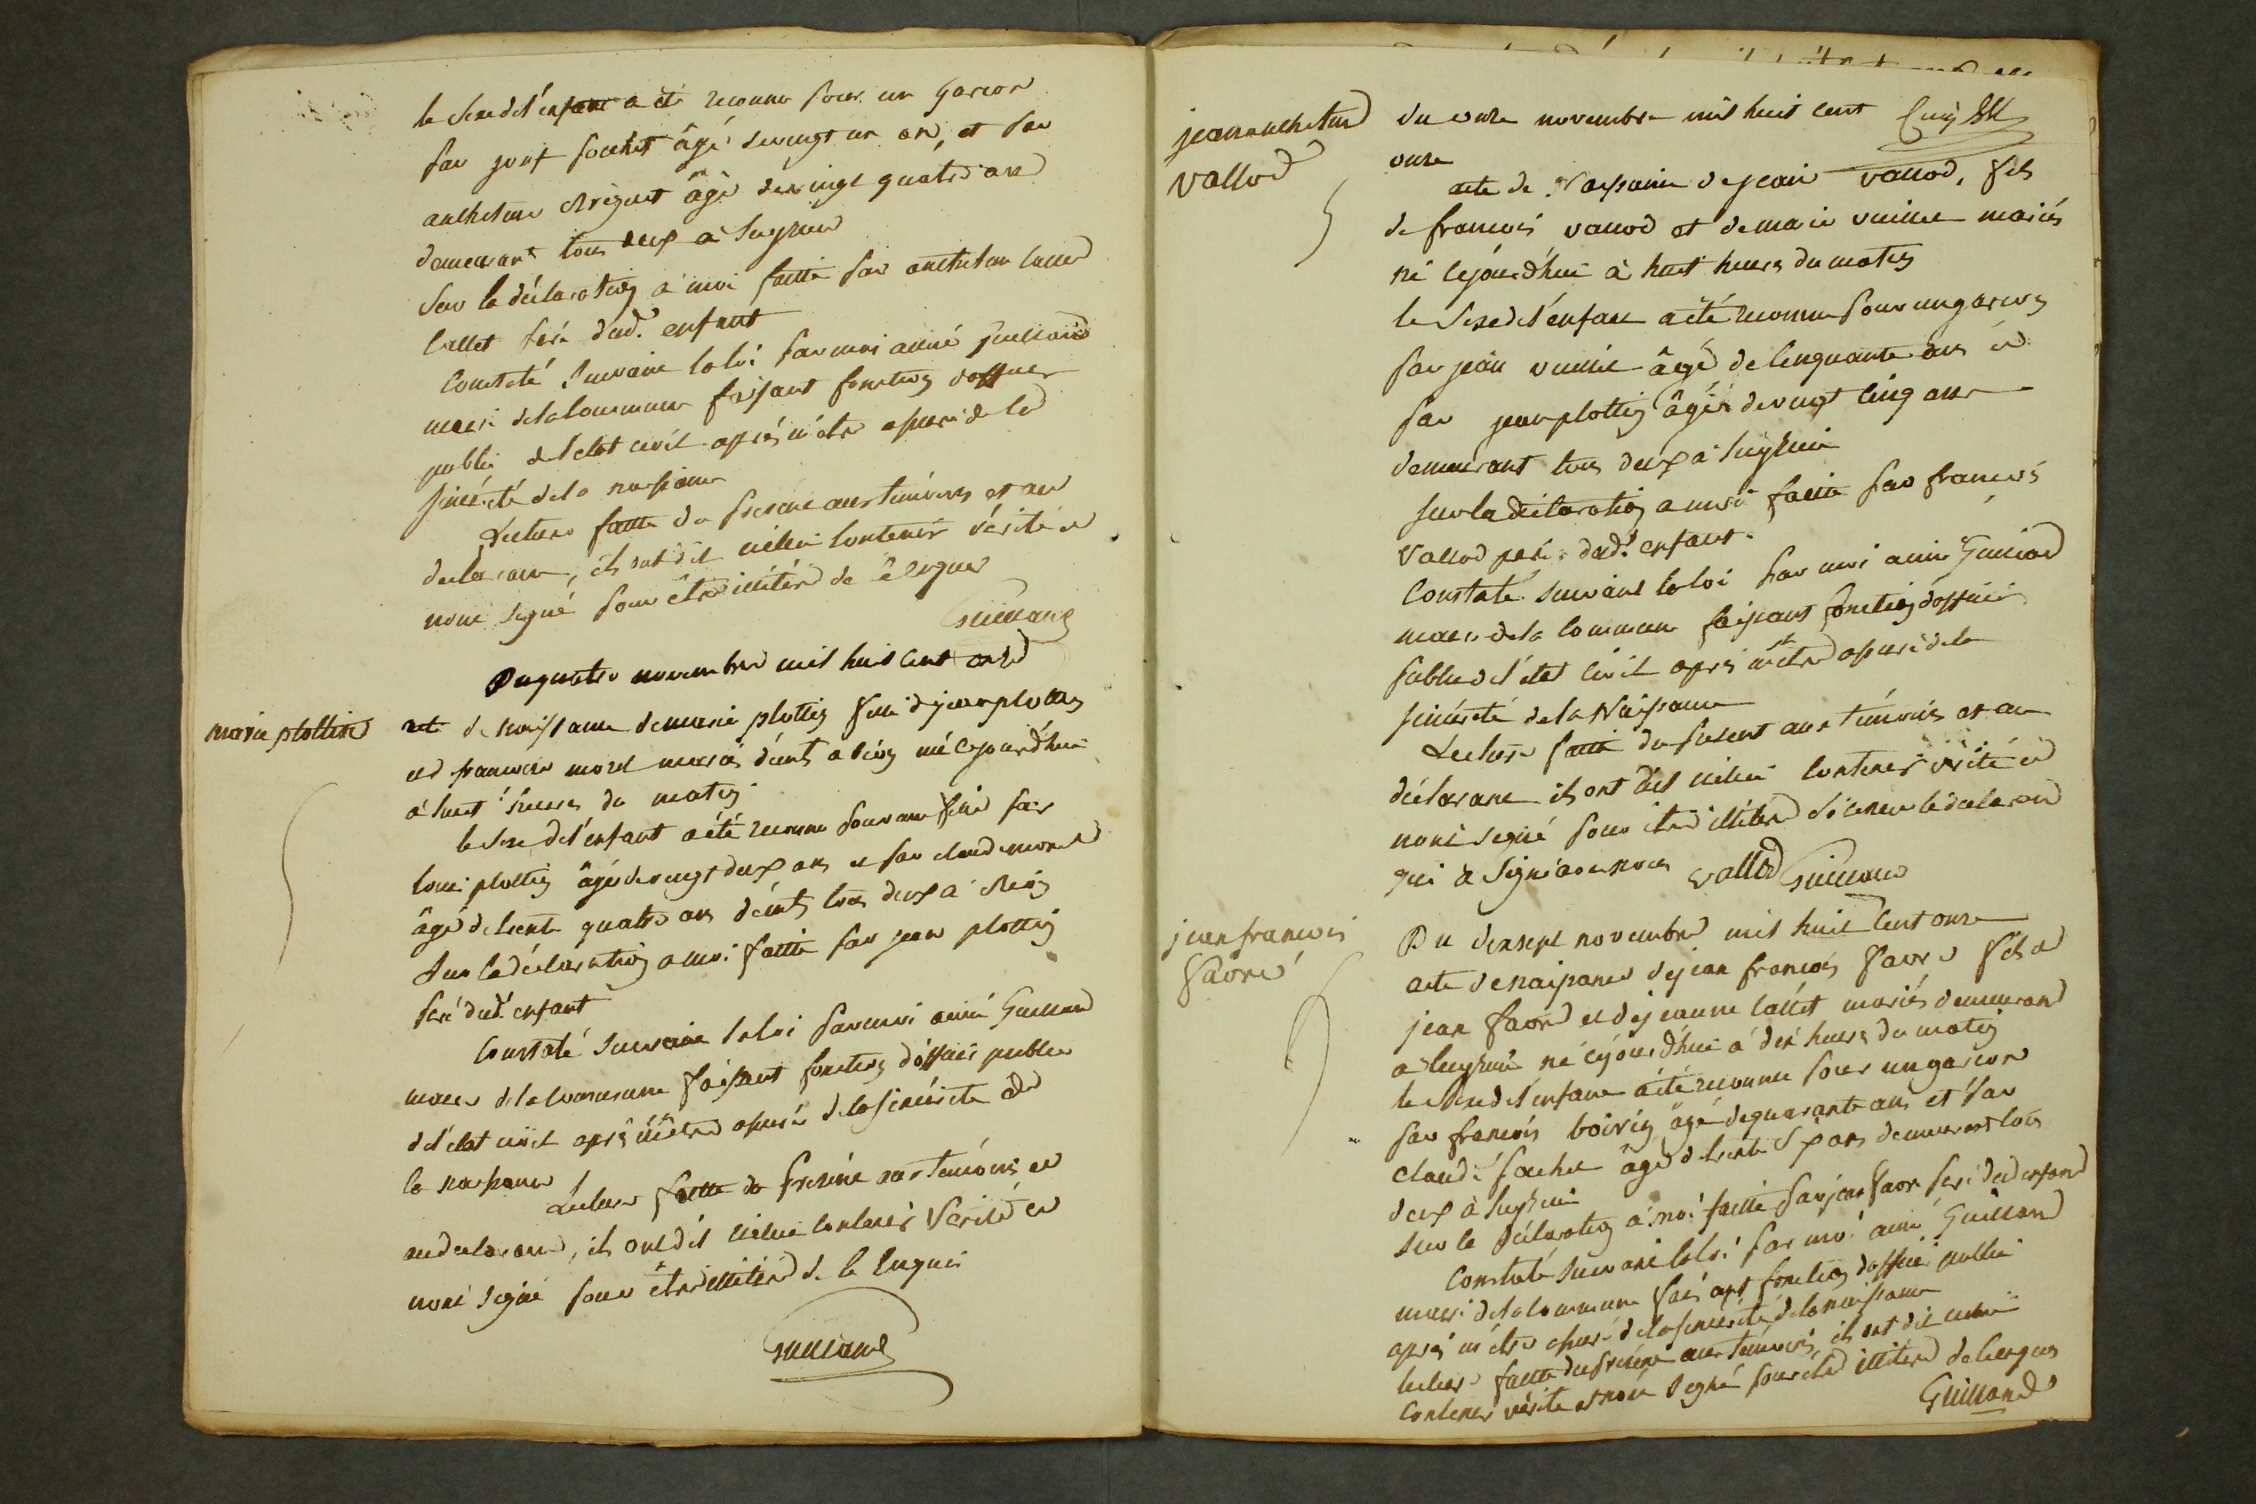 le sexe de l'enfant a été reconnu pour un garcon
par josef fouchet âgé de vingt un an, et par
anthelme âgé de vingt quatre ans
demeurant tous deux à
Sur la déclaration à moi faitte par anthelme
Callet père dud.t enfant
Constaté suivant la loi par moi aimé Guilland
maire de la commune faisant fonction d'officier
public de l'état civil après m'être assuré de la
sincérité de la naissance
Lecture faitte du présent aux temoins et au
declarant, ils ont dit icelui contenir vérité et
nont signé pour être illitéré de ce enquis
Guilland
Du quatre novembre mil huit cent onze
marie plottin
acte de naissance de marie plottin fille de jean plottin
et francoise morel mariés né cejourdhui
à huit heures du matin
le sexe de l'enfant a été reconnu pour une fille par
louis plottin âgé de vingt deux ans et par claude morel
âgé de trente quatre ans tous deux à
Sur la déclaration a moi faitte par jean plottin
père dud.t enfant
Constaté suivant la loi par moi aimé Guilland
maire de la commune faisant fonction d'officier public
de l'état civil après m'être assuré de la sincérité de
la naissance
Lecture faitte du présent aux temoins et
au declarant, ils ont dit icelui contenir vérité et
nont signé pour être illitéré de ce enquis
Guilland
jean anthelme
Vallod
du onze novembre mil huit cent
onze
acte de Naissance de jean vallod, fils
de francois vallod et de marie vuillet mariés
né cejourd'hui à huit heures du matin
le sexe de l'enfant a été reconnu pour un garcon
par jean vuillet âgé de cinquante ans et
par jean plottin âgé de vingt cinq ans
demeurant tous deux à
sur la déclaration a moi faitte par francois
Vallod père dud.t enfant
Constaté suivant la loi par moi aimé Guilland
maire de la commune faisant fonction d'officier
public de l'état civil après m'être assuré de la
sincérité de la Naissance
Lecture faitte du présent aux temoins et au
déclarant ils ont dit icelui contenir vérité et
nont signé pour être illitéré le declarant
qui a signé avec nous vallod Guilland
jean francois
favre
Du dixsept novembre mil huit cent onze
acte de naissance de jean francois favre fils de
jean favre et de jeanne callet mariés demeurant
a né cejourd'hui à dix heures du matin
le sexe de l'enfant a été reconnu pour un garcon
par francois boirin âgé de quarante ans et par
claude fouchet âgé de trente ans demeurant tous
deux à
sur la déclaration à moi faitte par jean favre père dud enfant
Constaté suivant la loi par moi aimé Guilland
maire de la commune faisant fonction d'officier public
après m'être assuré de la sincérité de la naissance
lecture faitte du présent aux temoins, ils ont dit icelui
contenir vérité et nont signé pour être illitéré de ce enquis
Guilland